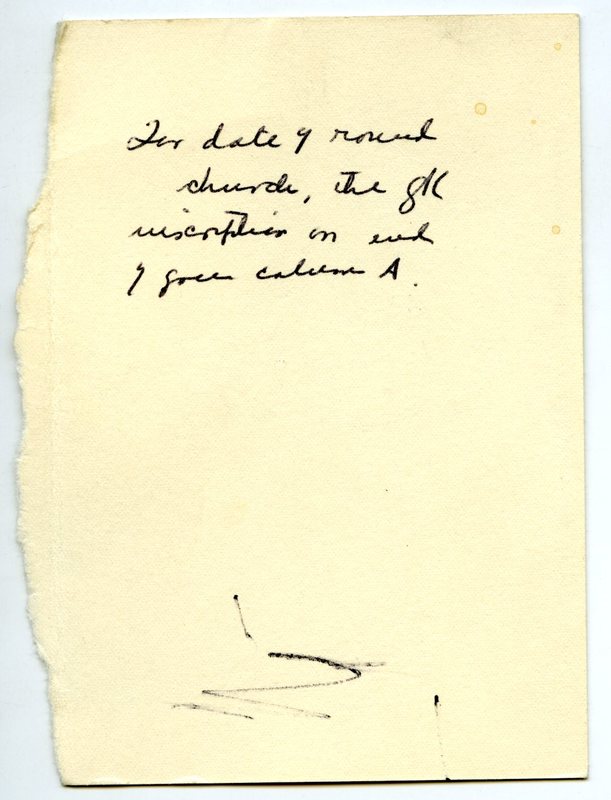 For date of round
church, the gk
inscription on end
of green column A.